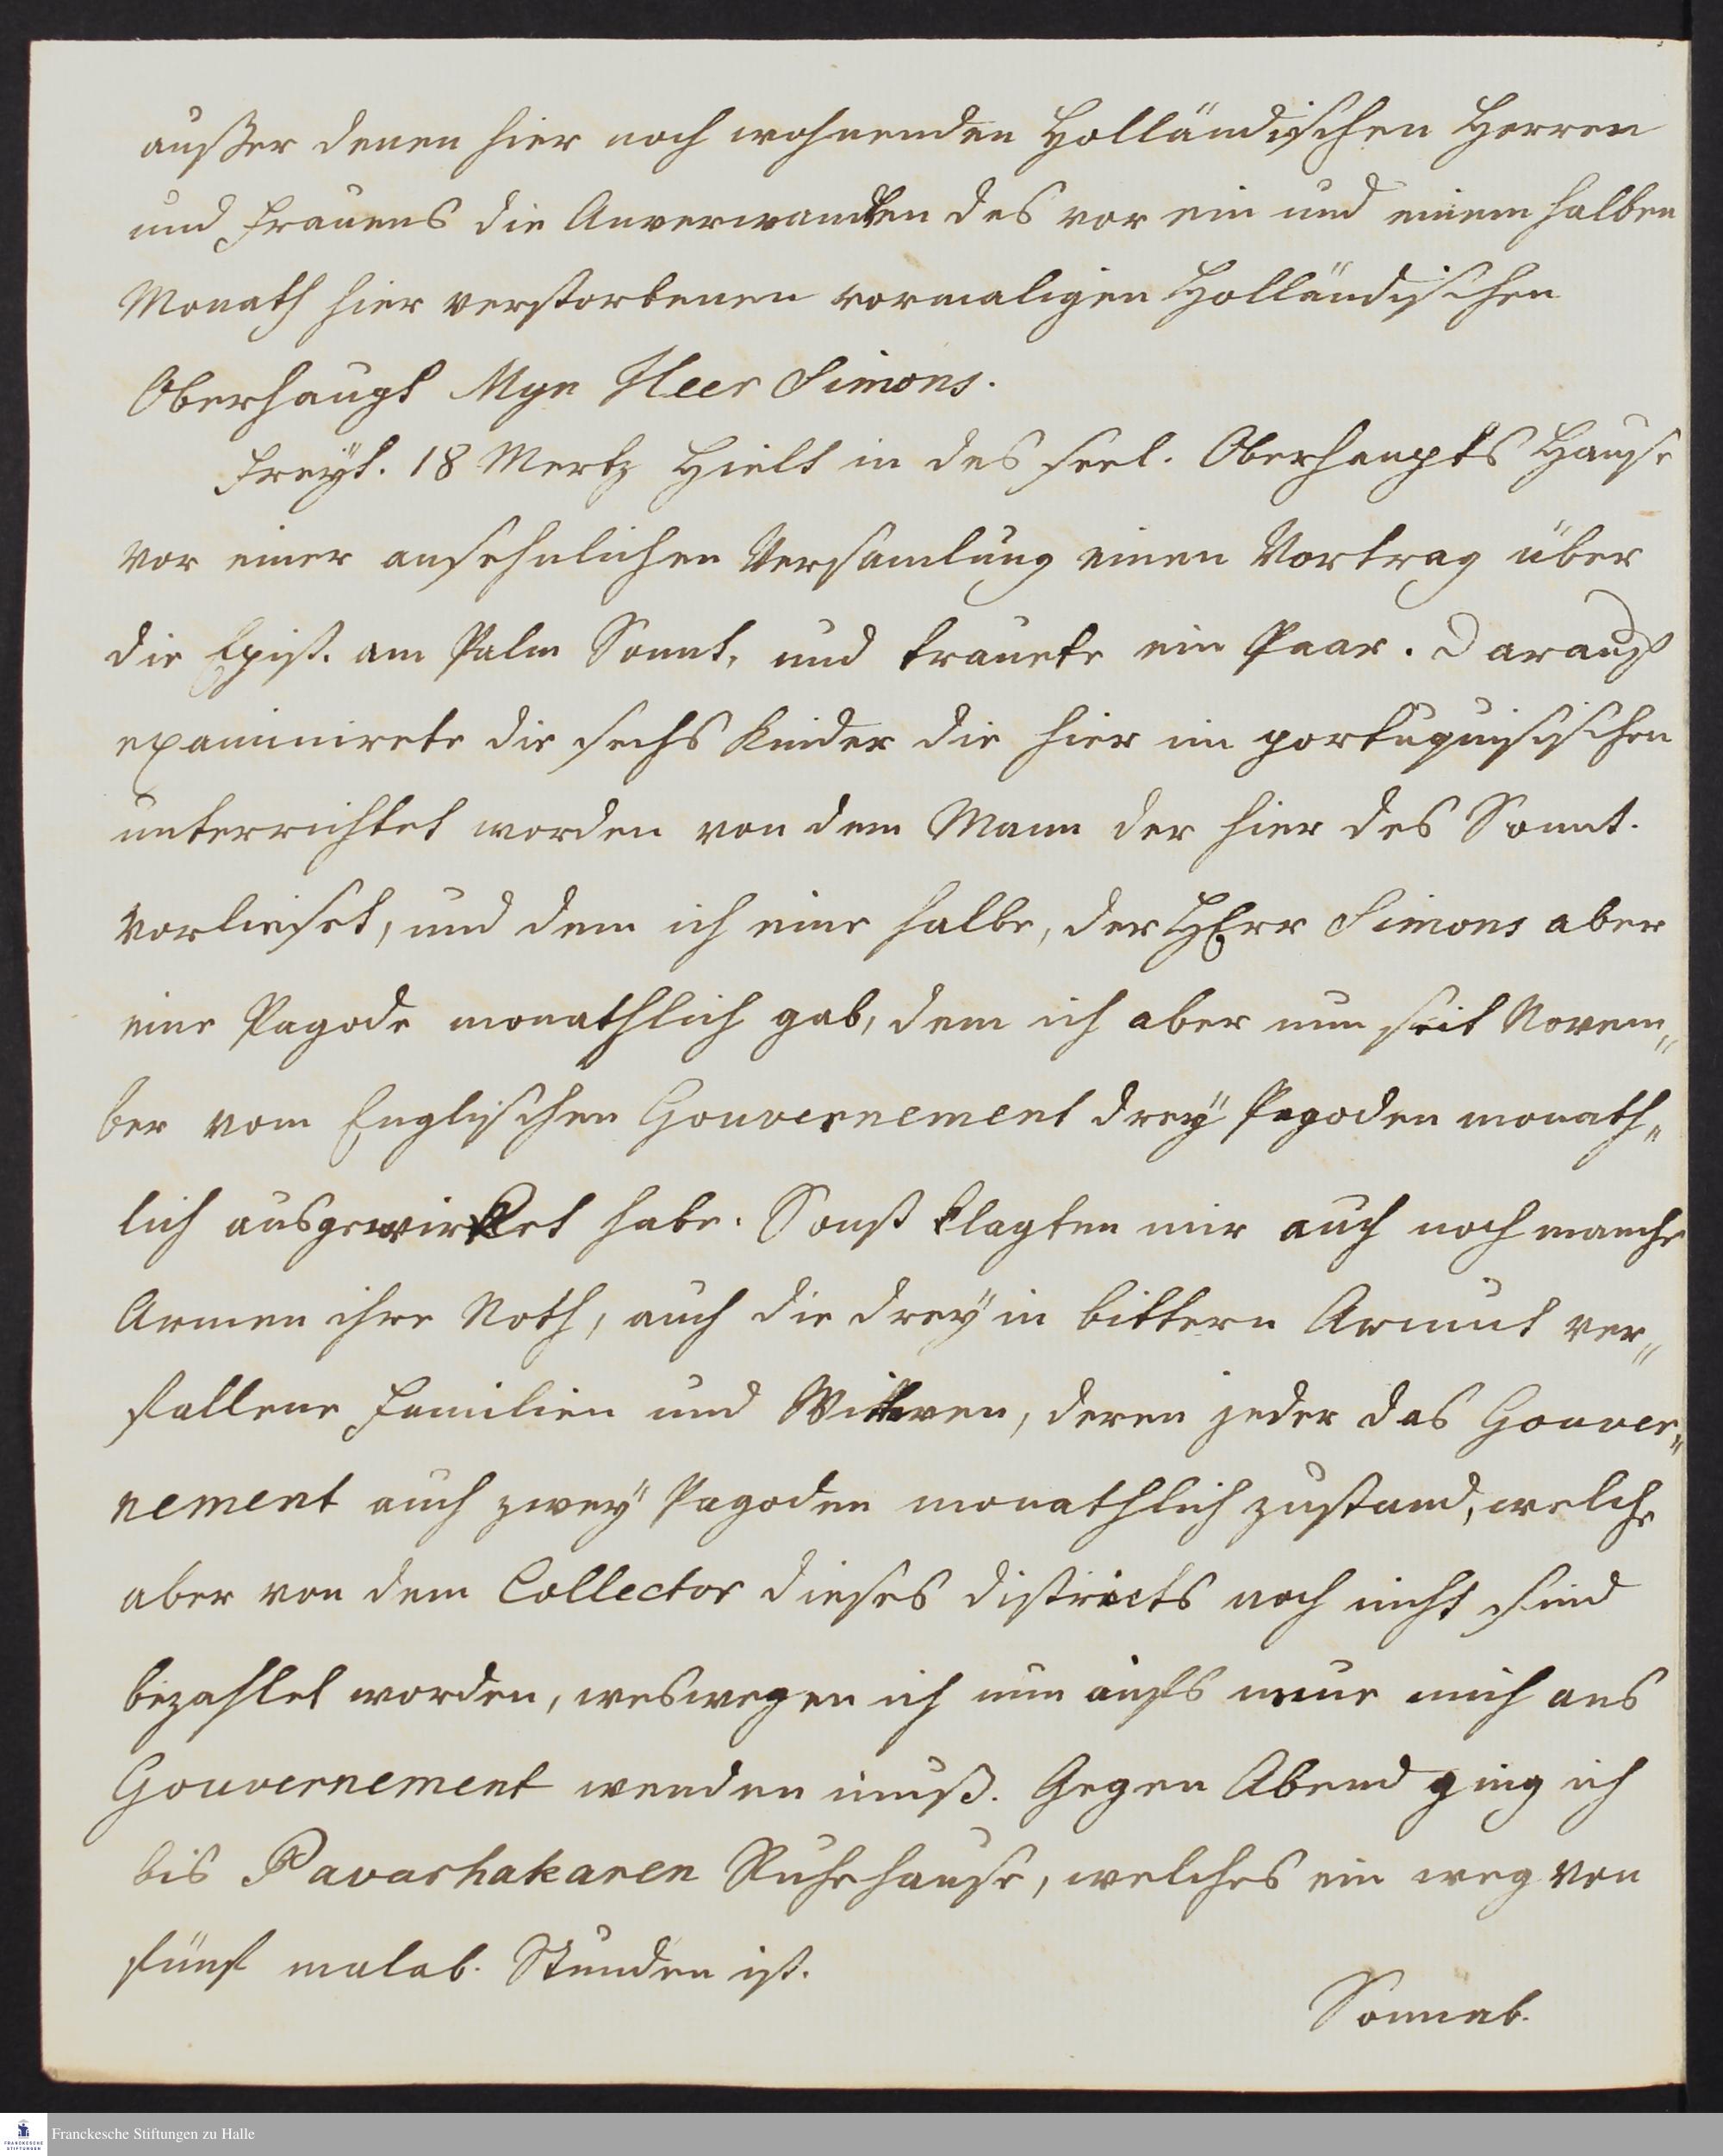 außer denen hier noch wohnenden Holländischen Herren
und Frauens die Anverwandten des vor ein und einem halben
Monath hier verstorbenen vormaligen Holländischen
Oberhaupt Myn Heer Simons.
Freyt. 18 Mertz Hielt in des seel. Oberhaupts Hause
vor einer ansehnlichen Versamlung einen Vortrag über
die Epist. am Palm Sonnt. und trauete ein Paar. Darauf
examinirete die sechs Kinder die hier im portuguisischen
unterrichtet worden von dem Mann der hier des Sonnt.
vorlieset, und dem ich eine halbe, der HErr Simons aber
eine Pagode monathlich gab, dem ich aber nun seit Novem„
ber vom Englischen Gouvernement dreÿ Pagoden monath„
lich ausgewirket habe. Sonst klagten mir auch noch manche
Armen ihre Noth, auch die dreÿ in bittern Armut ver„
fallene Familien und Witwen, deren jeder das Gouver„
nement auch zweÿ Pagoden monathlich zustand, welche
aber von dem Collector dieses districts noch nicht sind
bezahlet worden, weswegen ich nun aufs neue mich ans
Gouvernement wenden muß. Gegen Abend ging ich
bis Pavashakaren Ruhehause, welches ein weg von
fünf malab. Stunden ist.
Sonnab.
Franckesche Stiftungen zu Halle
FRANCKESCHE
STIFTUNGEN